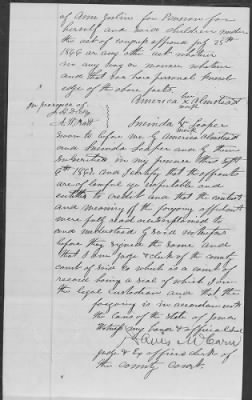 of Ann Joslin for Pension for
herself and said children under
the act of Congress approved July 25th
1866 or any other act whatever
in any way or manner whatever
and that has have personal knowl
edge of the above facts.
her
America x Almstead
mark
In presence of
her
Lucinda x Cooper
mark
sworn to before me by America Almstead
and Lucinda Cooper and by them
subscribed in my presence this Sept
6th 1867 and I certify that the affiants
are of lawful age reputable and
entitled to credit and that the contents
and meaning of the foregoing affidavit
were fully read and explained to
and understood by said
before they signed the same and
that I am judge & clerk of the county
court of said Co which is a court of
record having a seal of which I am
the legal custodian and that the
foregoing is in accordance with
the laws of the State of
Witness my hand & official seal
judge & Ex officio clerk of
the county court.